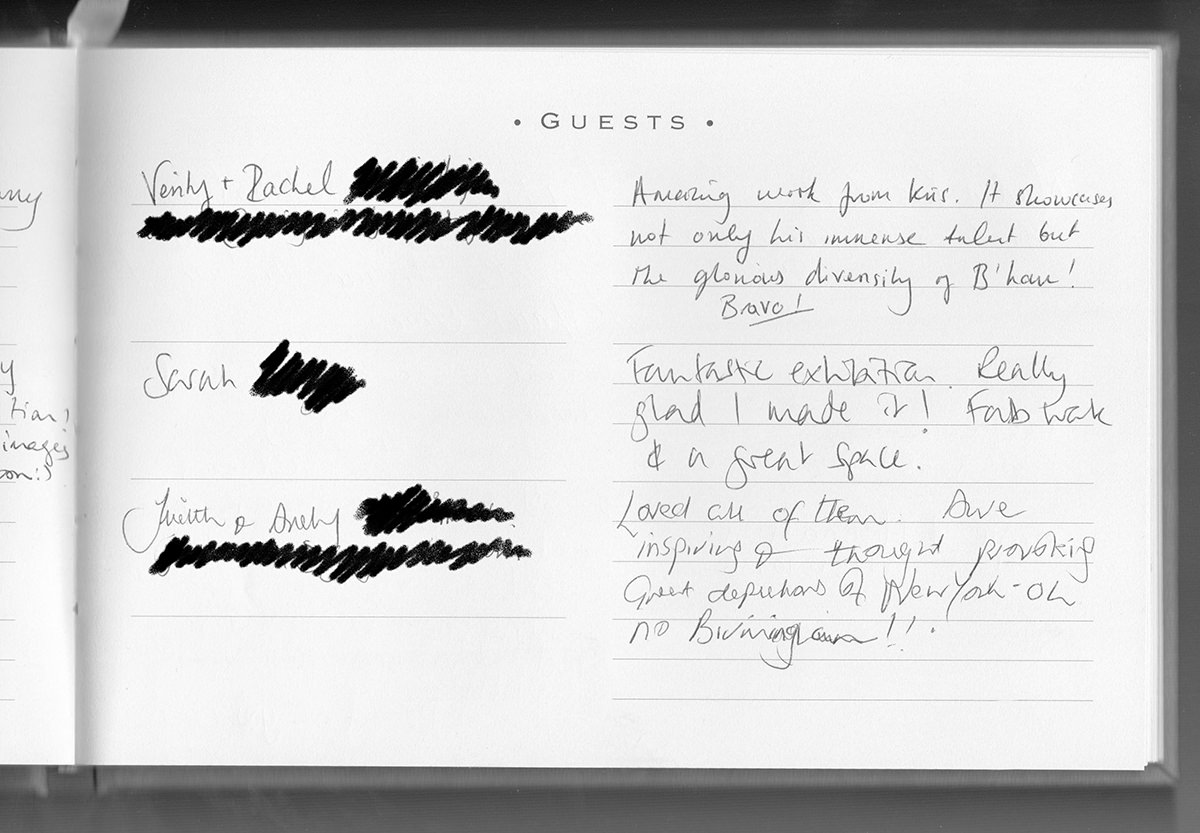 • GUESTS •
Verity + Rachel
Amazing work from Kris. It showcases
not only his immense talent but
the glorious diversity of B'ham!
Bravo!
Sarah
Fantastic exhibition. Really
glad I made it! Fab work
& a great space.
Judith & Andy
Loved all of them. Awe
inspiring & thought provoking
Great depictions of New York - Oh
no Birmingham!!.
tion!
images